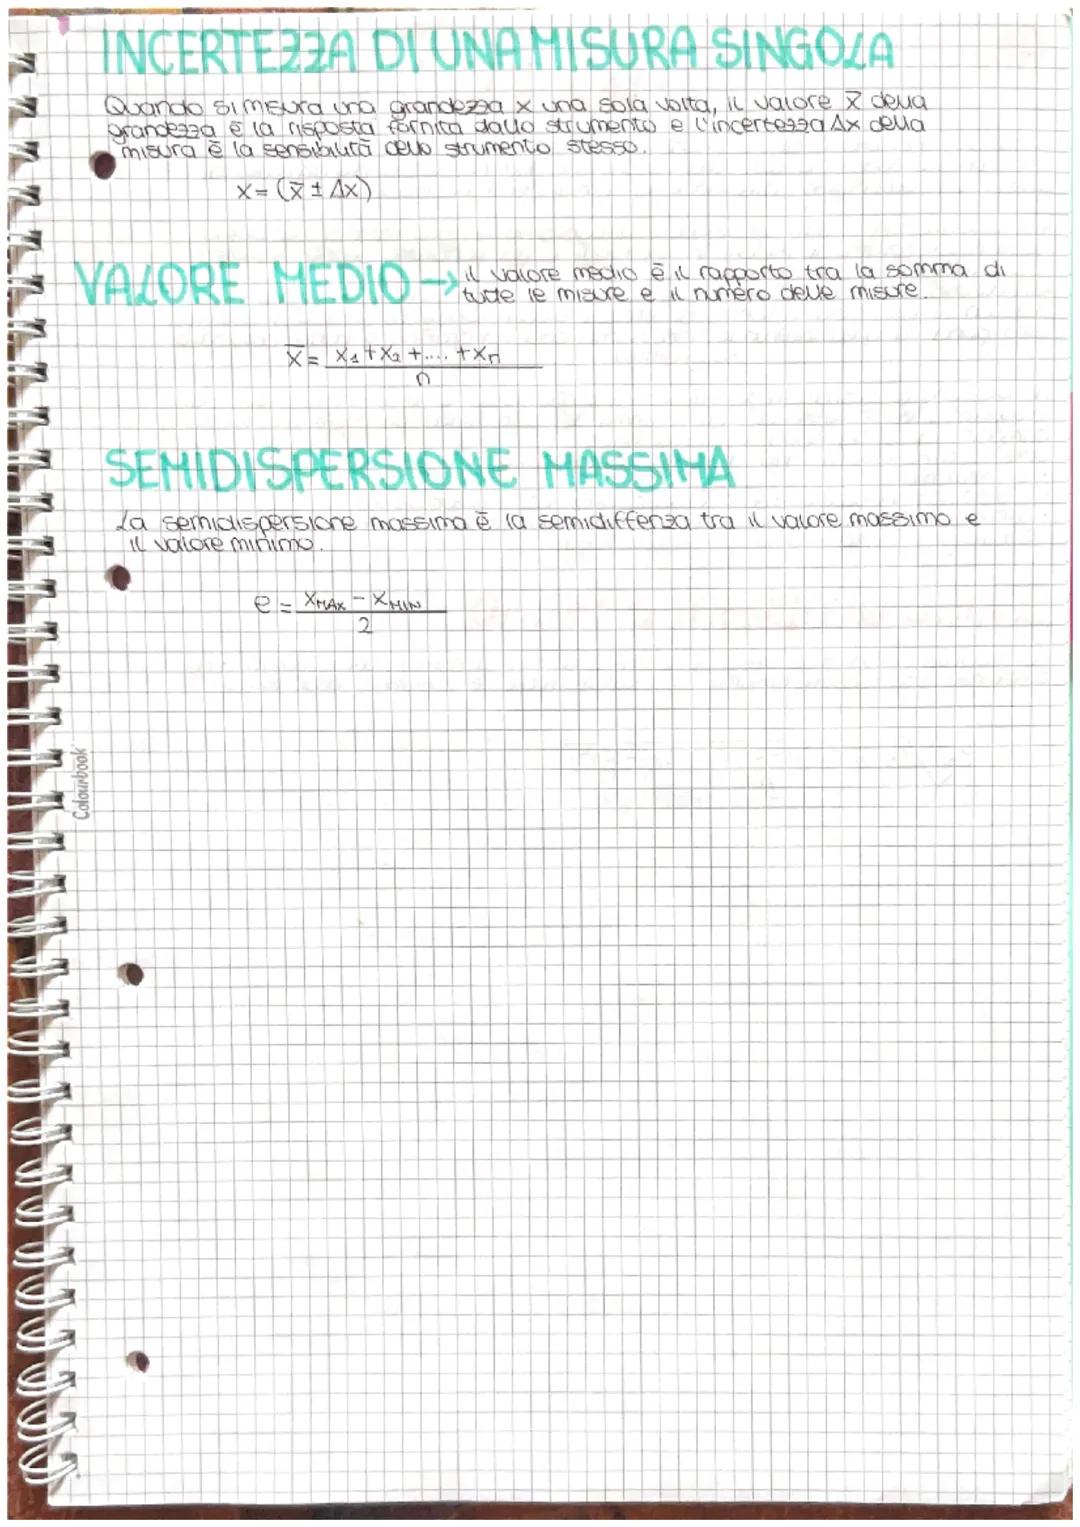 INCERTEZZA DI UNA MISURA SINGOLA
Quando si misura una grandezza x una sola volta, il valore x̄ della
grandezza è la risposta fornita dallo strumento e l'incertezza Δx della
misura è la sensibilità dello strumento stesso.
x = (x̄ ± Δx)
VALORE MEDIO → il valore medio è il rapporto tra la somma di
tutte le misure e il numero delle misure.
x̄ = x₁ + x₂ + .... + xₙ
n
SEMIDISPERSIONE MASSIMA
La semidispersione massima è la semidiffenza tra il valore massimo e
il valore minimo.
e = xMAX - xMIN
2
Colourbook